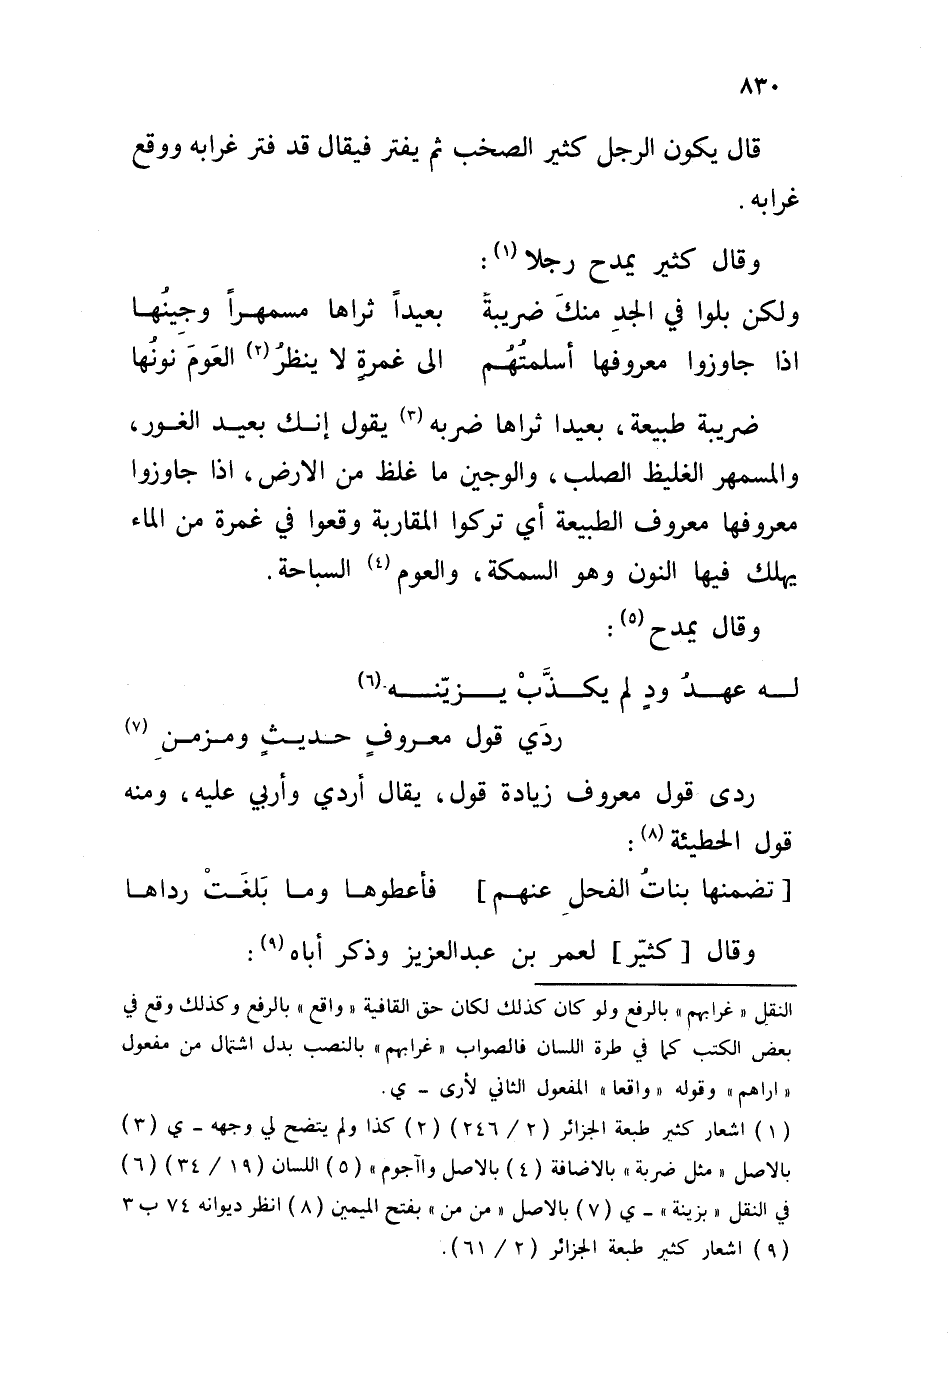 ٨٣٠
قال يكون الرجل كثير الصخب ثم يفتر فيقال قد فتر غرابه ووقع
غرابه .
وقال كثير يمدح رجلا (١) :
ولكن بلوا في الجدِ منكَ ضريبةً بعيداً ثراها مسمهراً وجِينُها
اذا جاوزوا معروفها أسلمتُهُم الى غمرةٍ لا ينظرُ (٢) العَومَ نونُها
ضريبة طبيعة ، بعيدا ثراها ضربه (٣) يقول إنك بعيد الغور ،
والمسمهر الغليظ الصلب ، والوجين ما غلظ من الارض ، اذا جاوزوا
معروفها معروف الطبيعة أي تركوا المقاربة وقعوا في غمرة من الماء
يهلك فيها النون وهو السمكة ، والعوم (٤) السباحة .
وقال يمدح (٥) :
له عهدُ ودٍ لم يكذَّبْ يزيّنه (٦)
ردَي قول معروفٍ حديثٍ ومزمنِ (٧)
ردى قول معروف زيادة قول ، يقال أردي وأربي عليه ، ومنه
قول الحطيئة (٨) :
[ تضمنها بناتُ الفحلِ عنهم ] فأعطوها وما بَلغَتْ رداها
وقال [ كثيّر ] لعمر بن عبدالعزيز وذكر أباه (٩) :
النقل « غرابهم » بالرفع ولو كان كذلك لكان حق القافية « واقع » بالرفع وكذلك وقع في
بعض الكتب كما في طرة اللسان فالصواب « غرابهم » بالنصب بدل اشتمال من مفعول
« اراهم » وقوله « واقعا » المفعول الثاني لأرى ــ ي .
(١) اشعار كثير طبعة الجزائر (٢ / ٢٤٦) (٢) كذا ولم يتضح لي وجهه ــ ي (٣)
بالاصل « مثل ضربة » بالاضافة (٤) بالاصل وآأجوم » (٥) اللسان (١٩ / ٣٤) (٦)
في النقل « بزينة » ــ ي (٧) بالاصل « من من » بفتح الميمين (٨) انظر ديوانه ٧٤ ب ٣
(٩) اشعار كثير طبعة الجزائر (٢ / ٦١) .